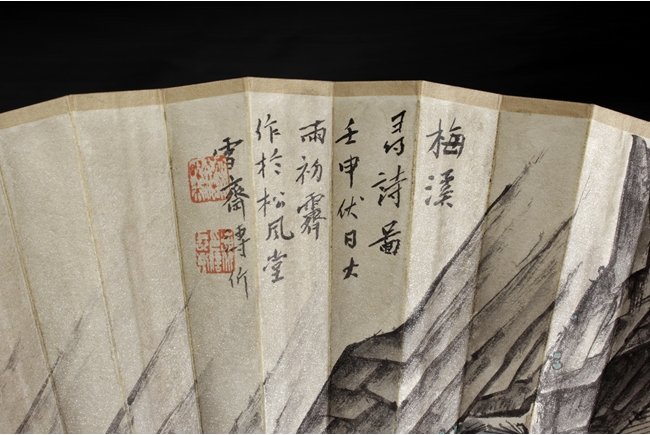 梅溪
尋詩畵
壬申伏日大
雨初霽
作於松風堂
雪齋專作